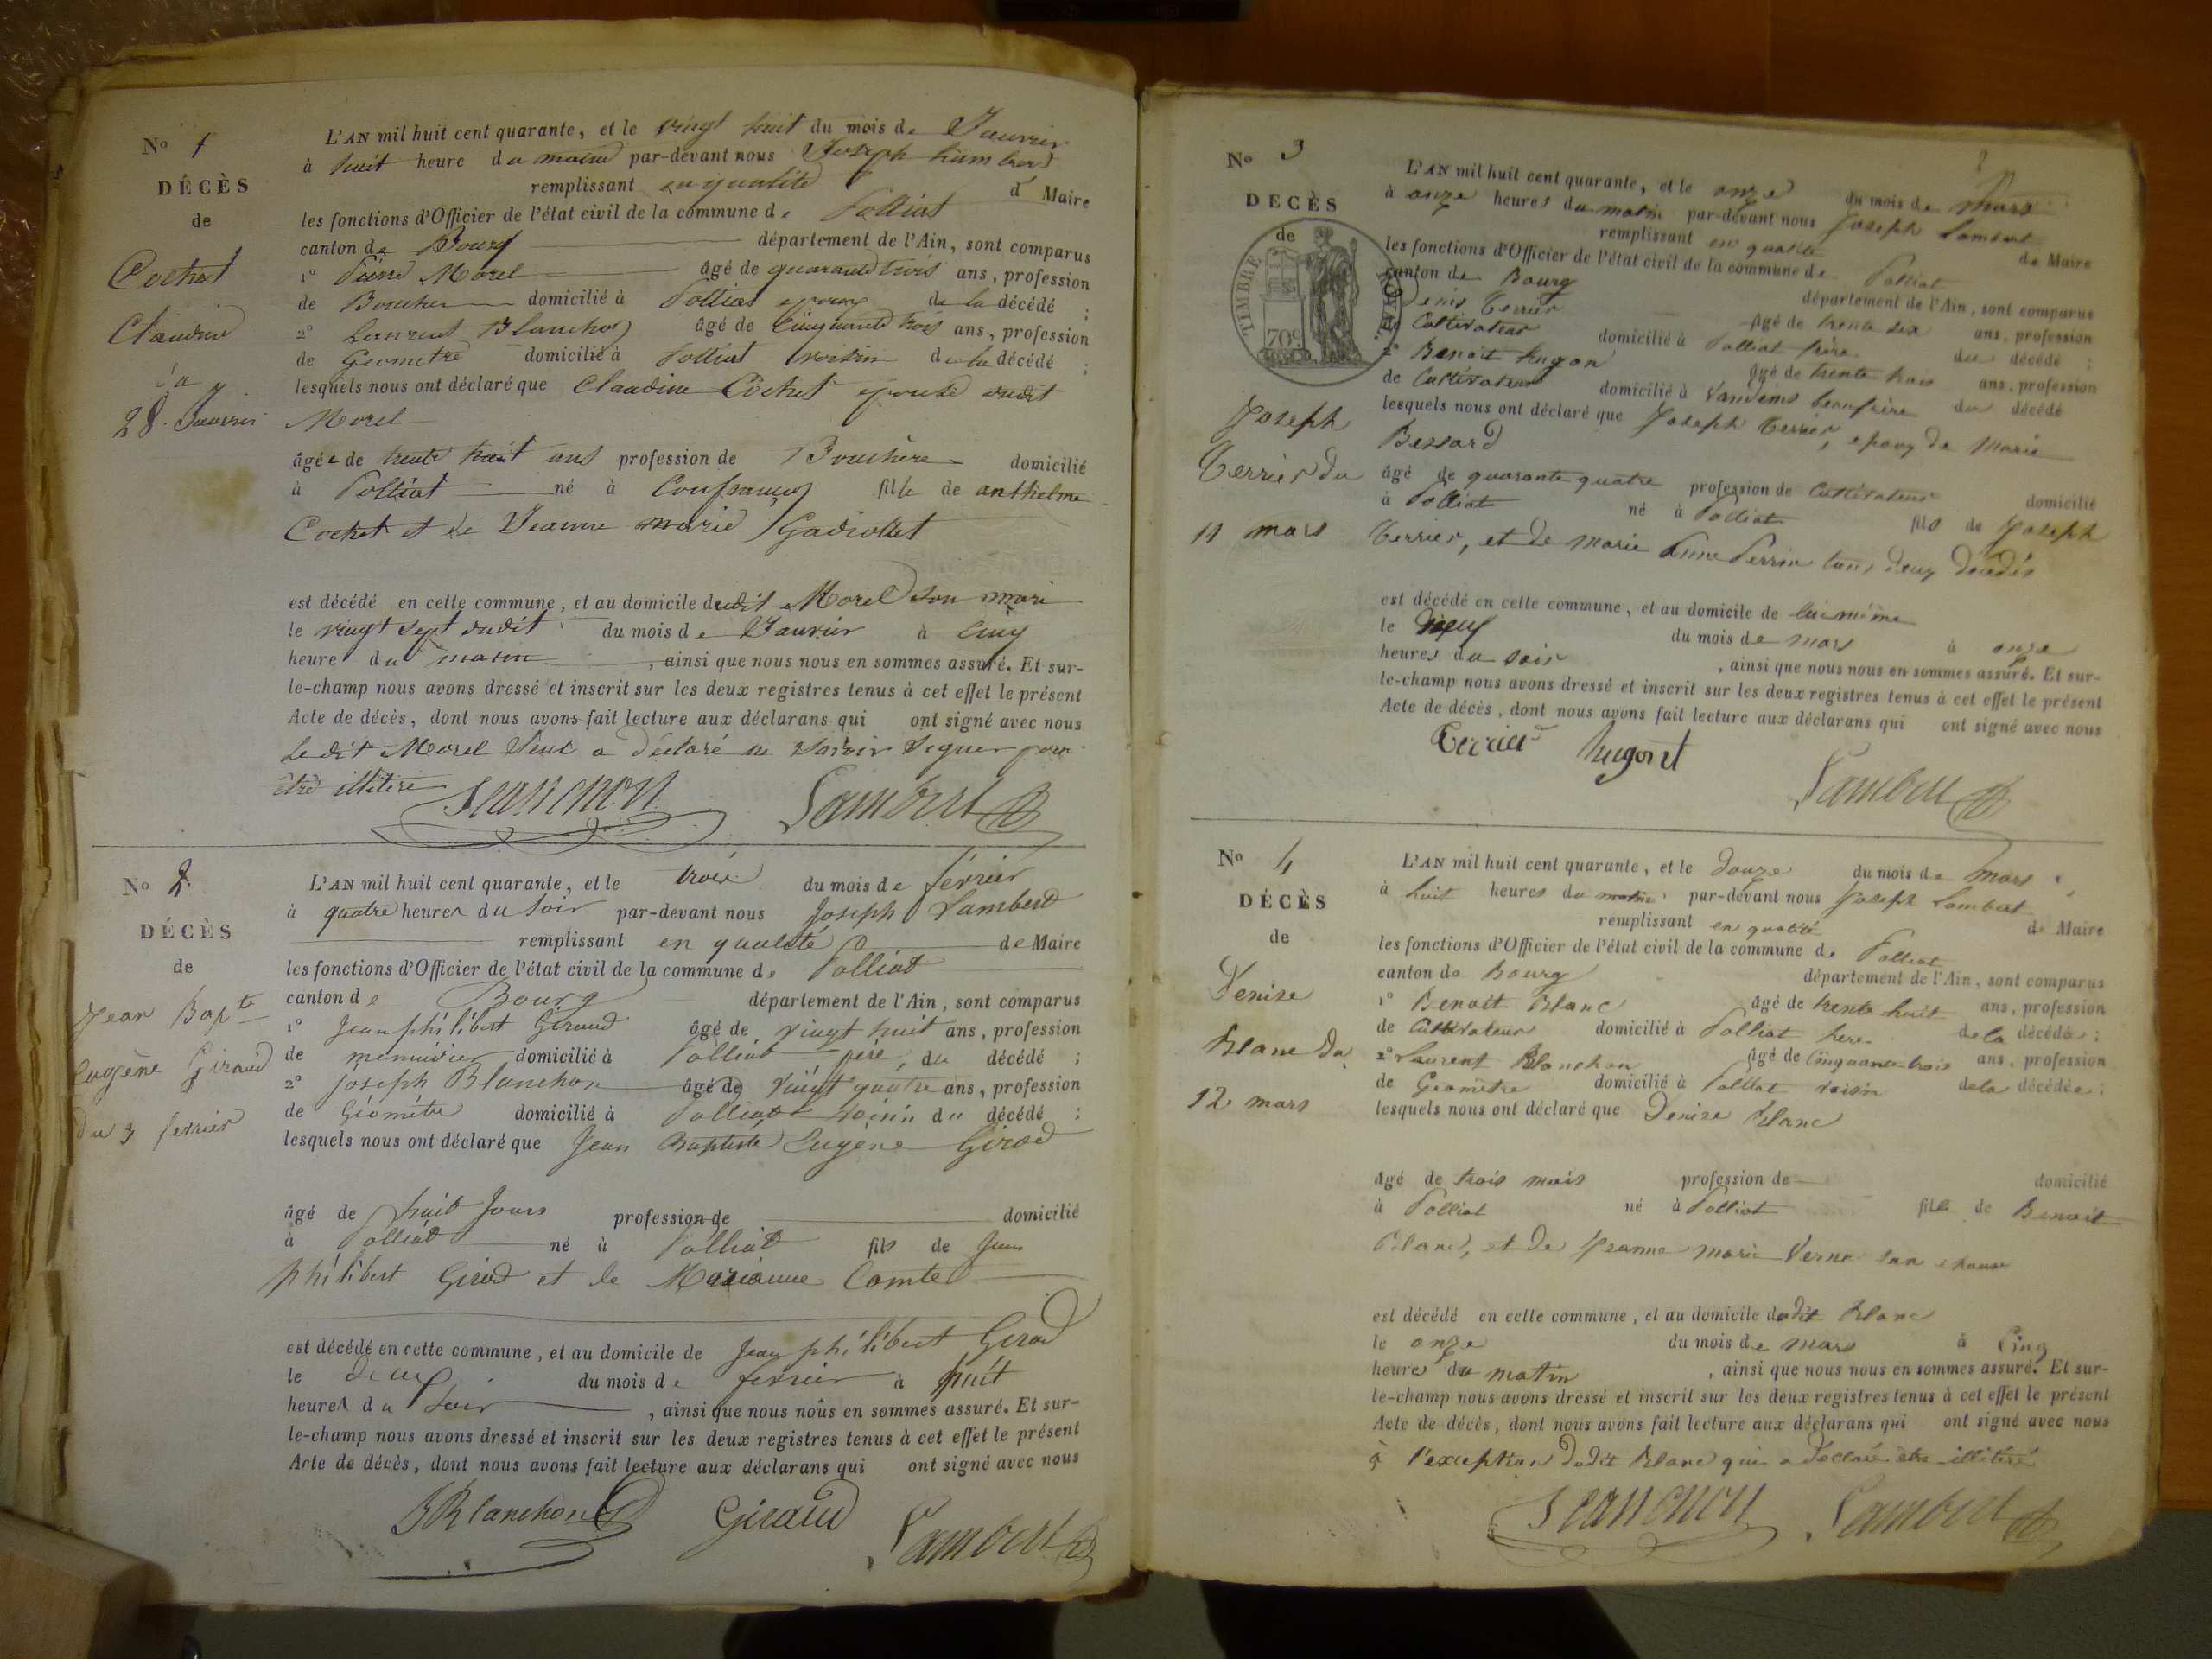 No 1
DÉCÈS
de
Cochet
Claudine
du
28. Janvier
L'AN mil huit cent quarante, et le vingt huit du mois de Janvier
à huit heure du matin par-devant nous Joseph Lambert
remplissant en qualité d Maire
les fonctions d'Officier de l'état civil de la commune de Polliat
canton de Bourg département de l'Ain, sont comparus
1° Morel âgé de quarante trois ans, profession
de Boucher domicilié à Polliat epoux de la décédé ;
2° Laurent Blanchon âgé de Cinquante trois ans, profession
de Geometre domicilié à Polliat voisin de la décédé ;
lesquels nous ont déclaré que Claudine Cochet epouse dudit
Morel
âgée de trente huit ans profession de Bouchère domicilié
à Polliat né à fille de anthelme
Cochet et de Jeanne marie Gadiollet
est décédé en cette commune, et au domicile dudit Morel son mari
le vingt sept dudit du mois de Janvier à Cinq
heure du matin, ainsi que nous nous en sommes assuré. Et sur-
le-champ nous avons dressé et inscrit sur les deux registres tenus à cet effet le présent
Acte de décès, dont nous avons fait lecture aux déclarans qui ont signé avec nous
Ledit Morel Seul a déclaré ne savoir signer pour
être illitéré
Blanchon Lambert
No 2.
DÉCÈS
de
Jean Bapte
Eugène Giraud
du 3 fevrier
L'AN mil huit cent quarante, et le trois du mois de février
à quatre heures du Soir par-devant nous Joseph Lambert
remplissant en qualité de Maire
les fonctions d'Officier de l'état civil de la commune de Polliat
canton de Bourg département de l'Ain, sont comparus
1° Jean philibert Giraud âgé de vingt huit ans, profession
de menuisier domicilié à Polliat père du décédé ;
2° Joseph Blanchon âgé de vingt quatre ans, profession
de Géomètre domicilié à Polliat voisin du décédé ;
lesquels nous ont déclaré que Jean Baptiste Eugène Girod
âgé de huit Jours profession de domicilié
à Polliat né à Polliat fils de Jean
philibert Girod et de Marianne Comte
est décédé en cette commune, et au domicile de Jean philibert Girod
le deux du mois de fevrier à huit
heures du Soir, ainsi que nous nous en sommes assuré. Et sur-
le-champ nous avons dressé et inscrit sur les deux registres tenus à cet effet le présent
Acte de décès, dont nous avons fait lecture aux déclarans qui ont signé avec nous
JBlanchon Giraud Lambert
No 3
DECÈS
de
TIMBRE ROYAL
70c
Joseph
Terrier du
11 mars
L'AN mil huit cent quarante, et le onze du mois de Mars
à onze heures du matin par-devant nous Joseph Lambert
remplissant en qualité de Maire
les fonctions d'Officier de l'état civil de la commune de Polliat
canton de Bourg département de l'Ain, sont comparus
Denis Terrier âgé de trente six ans, profession
de Cultivateur domicilié à Polliat frère du décédé ;
2° Benoit hugon âgé de trente trois ans, profession
de Cultivateur domicilié à Vandeins beaufrère du décédé
lesquels nous ont déclaré que Joseph Terrier, epoux de Marie
Bessard
âgé de quarante quatre profession de Cultivateur domicilié
à Polliat né à Polliat fils de Joseph
Terrier, et de marie Anne Perrin tous deux décédés
est décédé en cette commune, et au domicile de lui même
le neuf du mois de mars à onze
heures du soir, ainsi que nous nous en sommes assuré. Et sur-
le-champ nous avons dressé et inscrit sur les deux registres tenus à cet effet le présent
Acte de décès, dont nous avons fait lecture aux déclarans qui ont signé avec nous
Terrier hugont
Lambert
No 4
DÉCÈS
de
Denise
Blanc du
12 mars
L'AN mil huit cent quarante, et le douze du mois de Mars
à huit heures du matin par-devant nous Joseph Lambert
remplissant en qualité de Maire
les fonctions d'Officier de l'état civil de la commune de Polliat
canton de Bourg département de l'Ain, sont comparus
1° Benoit Blanc âgé de trente huit ans, profession
de Cultivateur domicilié à Polliat père de la décédée ;
2° Laurent Blanchon âgé de Cinquante trois ans, profession
de Geomètre domicilié à Polliat voisin de la décédée ;
lesquels nous ont déclaré que Denise Blanc
âgé de trois mois profession de domicilié
à Polliat né à Polliat fille de Benoit
Blanc, et de Jeanne marie Verne son epouse
est décédé en cette commune, et au domicile dudit Blanc
le onze du mois de mars à Cinq
heures du matin, ainsi que nous nous en sommes assuré. Et sur-
le-champ nous avons dressé et inscrit sur les deux registres tenus à cet effet le présent
Acte de décès, dont nous avons fait lecture aux déclarans qui ont signé avec nous
à l'exception dudit Blanc qui a déclaré être illitéré
Blanchon Lambert